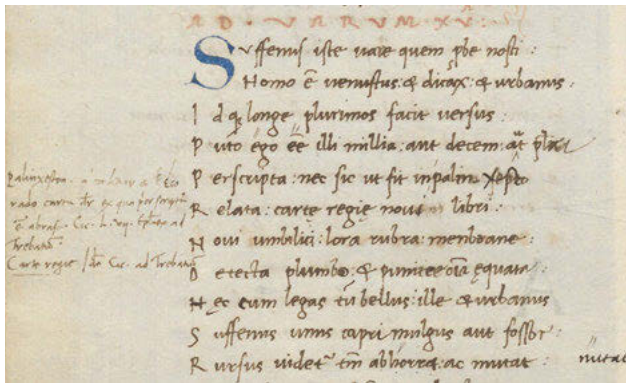 AD · VARUM XV:
Suffenus iste uare quem pbe nosti :
Homo ē uenustus: & dicax: & urbanus :
Idq; longe plurimos facit uersus :
Puto ego eē illi millia: aut decem: aūt plura
Perscripta: nec sic ut fit in palimxesto
Relata: carte regię noui libri :
Noui umbilici: lora rubra: menbrane
Detecta plumbo: & pumice oīa ęquata :
Hęc cum legas tū bellus: ille & urbanus
Suffenus unus caprimulgus aut fossor
Rursus uidetr tm̄ abhorret: ac mutat :
mutat
Palinxeston
rado carta
ē abras Cic.
Trebatiū
Carte regię Cic. ad Trebatiū